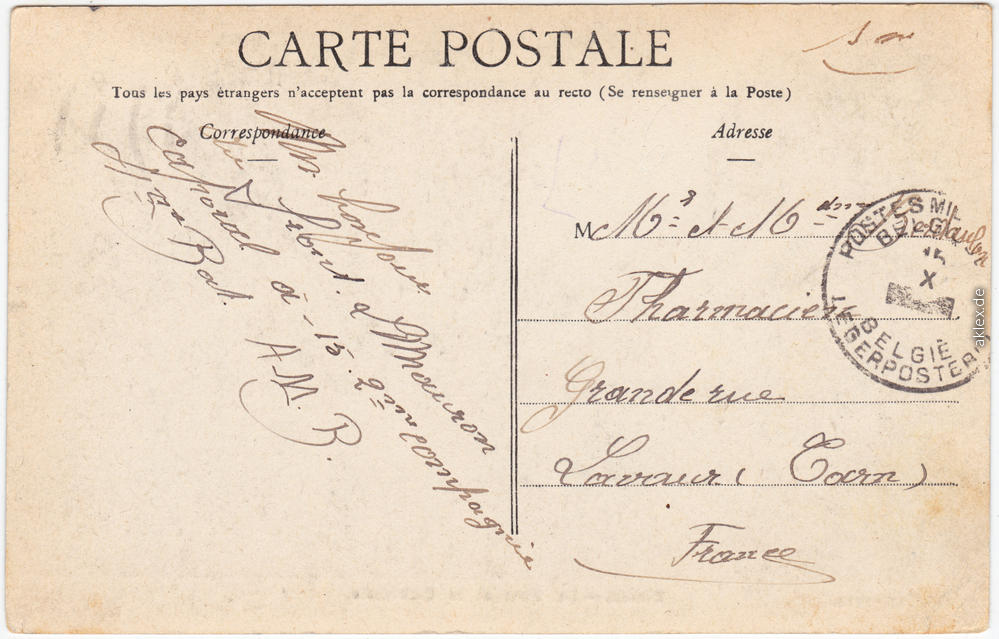 CARTE POSTALE
Tous les pays étrangers n'acceptent pas la correspondance au recto (Se renseigner à la Poste)
Correspondance
Adresse
à Mauron
Caporal à - 15. 2me compagnie
Bat. A. M. B.
M Mr et Mme
Pharmacien
Grande rue
Lavaur (Tarn)
France
POSTES MIL
BELG
15
X
BELGIË
LEGERPOSTERIJ
aklex.de